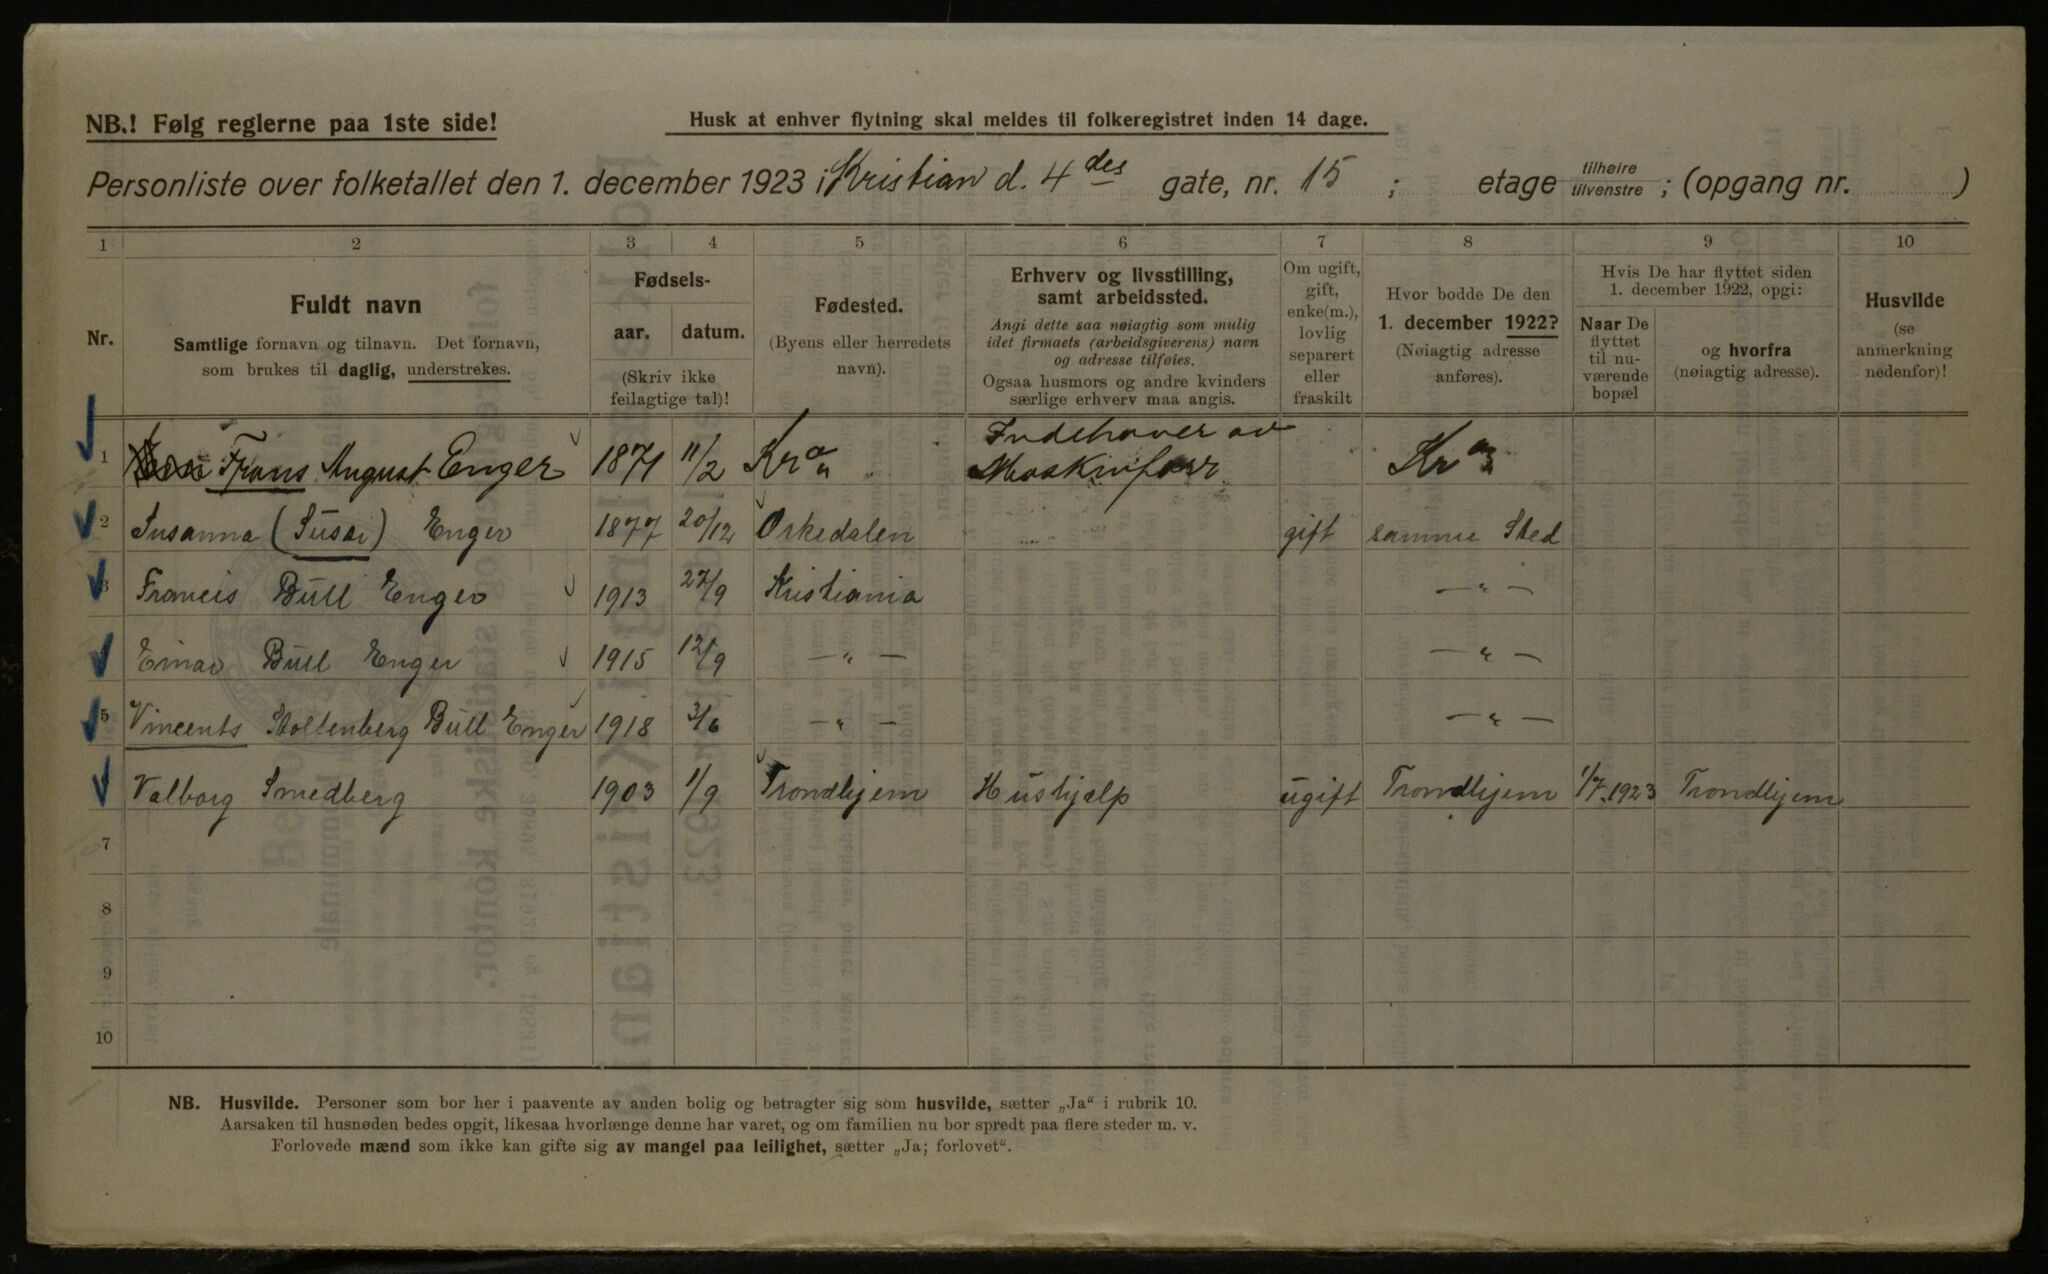 NB.! Følg reglerne paa 1ste side!
Husk at enhver flytning skal meldes til folkeregistret inden 14 dage.
Personliste over folketallet den 1. december 1923 i Kristian d. 4des gate, nr. 15 ; etage tilhøire tilvenstre ; (opgang nr. )
1 2 3 4 5 6 7 8 9 10
Nr.
Fuldt navn
Samtlige fornavn og tilnavn. Det fornavn,
som brukes til daglig, understrekes.
Fødsels-
aar. datum.
(Skriv ikke
feilagtige tal)!
Fødested.
(Byens eller herredets
navn).
Erhverv og livsstilling,
samt arbeidssted.
Angi dette saa nøiagtig som mulig
idet firmaets (arbeidsgiverens) navn
og adresse tilføies.
Ogsaa husmors og andre kvinders
særlige erhverv maa angis.
Om ugift,
gift,
enke(m.),
lovlig
separert
eller
fraskilt
Hvor bodde De den
1. december 1922?
(Nøiagtig adresse
anføres).
Hvis De har flyttet siden
1. december 1922, opgi:
Naar De
flyttet
til nu-
værende
bopæl
og hvorfra
(nøiagtig adresse).
Husvilde
(se
anmerkning
nedenfor)!
1 Frans August Enger 1871 11/2 Kra Indehaver av Maskinforr. Kra
2 Susanna (Susai) Enger 1877 20/12 Orkedalen gift samme Sted
3 Francis Bull Enger 1913 27/9 Kristiania — " —
Einar Bull Enger 1915 12/9 — " — — " —
5 Vincents Stoltenberg Bull Enger 1918 3/6 — " — — " —
Valborg Smedberg 1903 1/9 Trondhjem Hushjælp ugift Trondhjem 1/7.1923 Trondhjem
7
8
9
10
NB. Husvilde. Personer som bor her i paavente av anden bolig og betragter sig som husvilde, sætter „Ja“ i rubrik 10.
Aarsaken til husnøden bedes opgit, likesaa hvorlænge denne har varet, og om familien nu bor spredt paa flere steder m. v.
Forlovede mænd som ikke kan gifte sig av mangel paa leilighet, sætter „Ja; forlovet“.